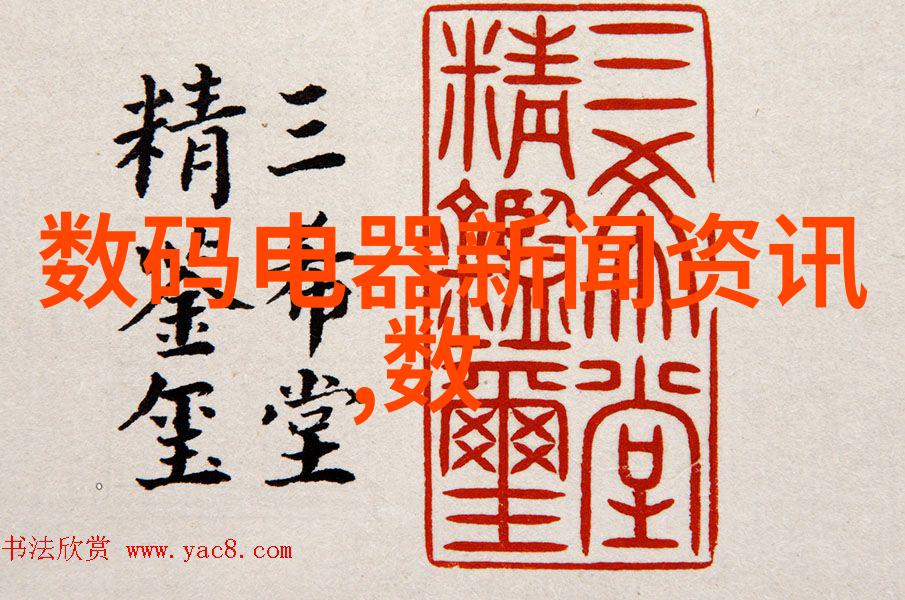 三希堂
精鉴玺
三希堂
精鑑璽
数码电器新闻资讯
,数
书法欣赏 www.yac8.com